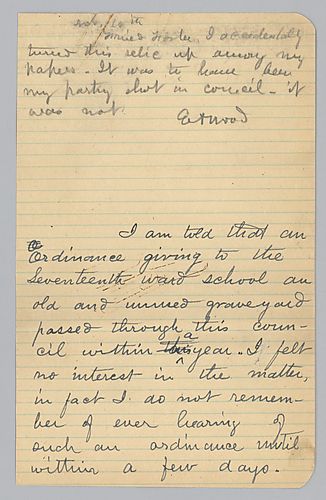 10th
I accidentally
turned this relic up among my
papers - It was to have been
my parting shot in council - it
was not.
Etwood
I am told that an
Ordinance giving to the
Seventeenth ward school an
old and unused graveyard
passed through this coun-
cil within this a year. I felt
no interest in the matter,
in fact I do not remem-
ber of ever hearing of
such an ordinance until
within a few days.